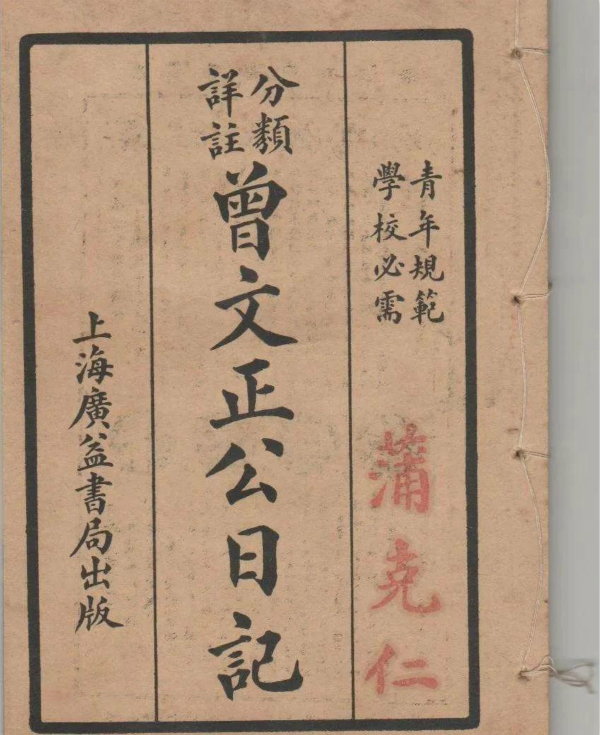 青年規範
學校必需
蒲克仁
分類
詳註
曾文正公日記
上海廣益書局出版